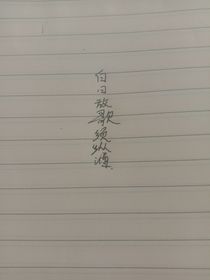 白日放歌须纵酒